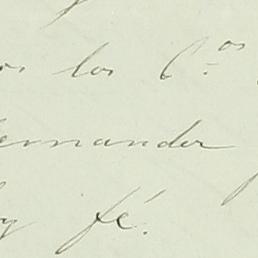 los C.os
ernander
fé.